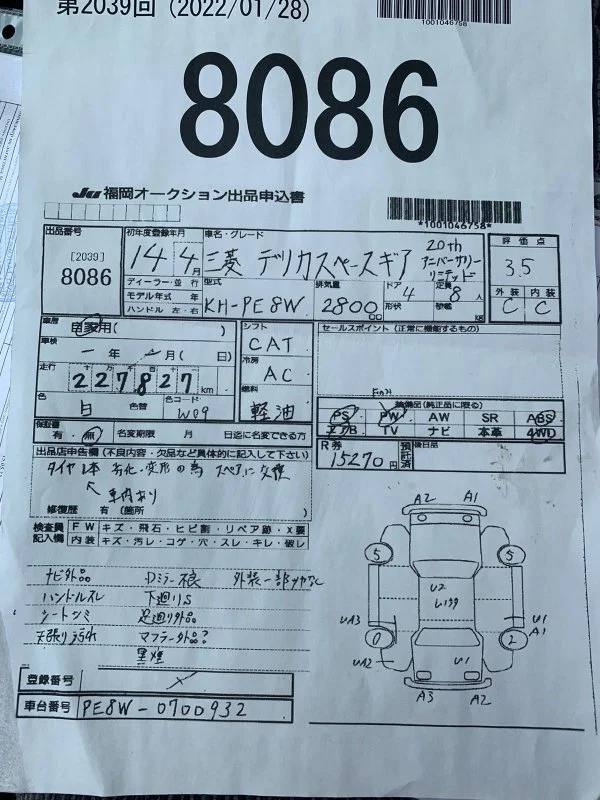 第2039回 (2022/01/28)
1001046758
8086
JU 福岡オークション出品申込書
*1001046758*
出品番号
[2039]
8086
初年度登録年月
14 4月
ディーラー・並行
モデル年式 年
ハンドル 左・右
車名・グレード
三菱 デリカスペースギア 20th アニバーサリー リミテッド
型式
KH-PE8W
排気量
2800 cc
ドア 4
形状
定員 8人
積載 kg
評価点
3.5
外装 内装
C C
車歴 自家用( )
車検 一年 一月( 日)
走行 227827 km
色 白 色替
色コード W09
シフト CAT
冷房 AC
燃料 軽油
セールスポイント(正常に機能するもの)
装備品(純正品に限る)
PS PW AW SR ABS
エアB TV ナビ 本革 4WD
保証書 有・無
名変期限 月 日迄に名変できる方
R券 15270円
預託済
後日品
出品店申告欄(不良内容・欠品など具体的に記入して下さい)
タイヤ1本 劣化・変形の為 スペアに交換
車内あり
修復歴 有(箇所 )
検査員記入欄
FW キズ・飛石・ヒビ割・リペア跡・X要
内装 キズ・汚レ・コゲ・穴・スレ・キレ・破レ
ナビ外品 Dミラー根 外装一部ツヤなし
ハンドルスレ 下廻りS
シートシミ 足廻り外品
天張り汚れ マフラー外品?
黒煙
登録番号
車台番号 PE8W-0700932
A2 A1
5 5
U2
UA3 U1
A1
0 2
UA2 U1
A3 A2